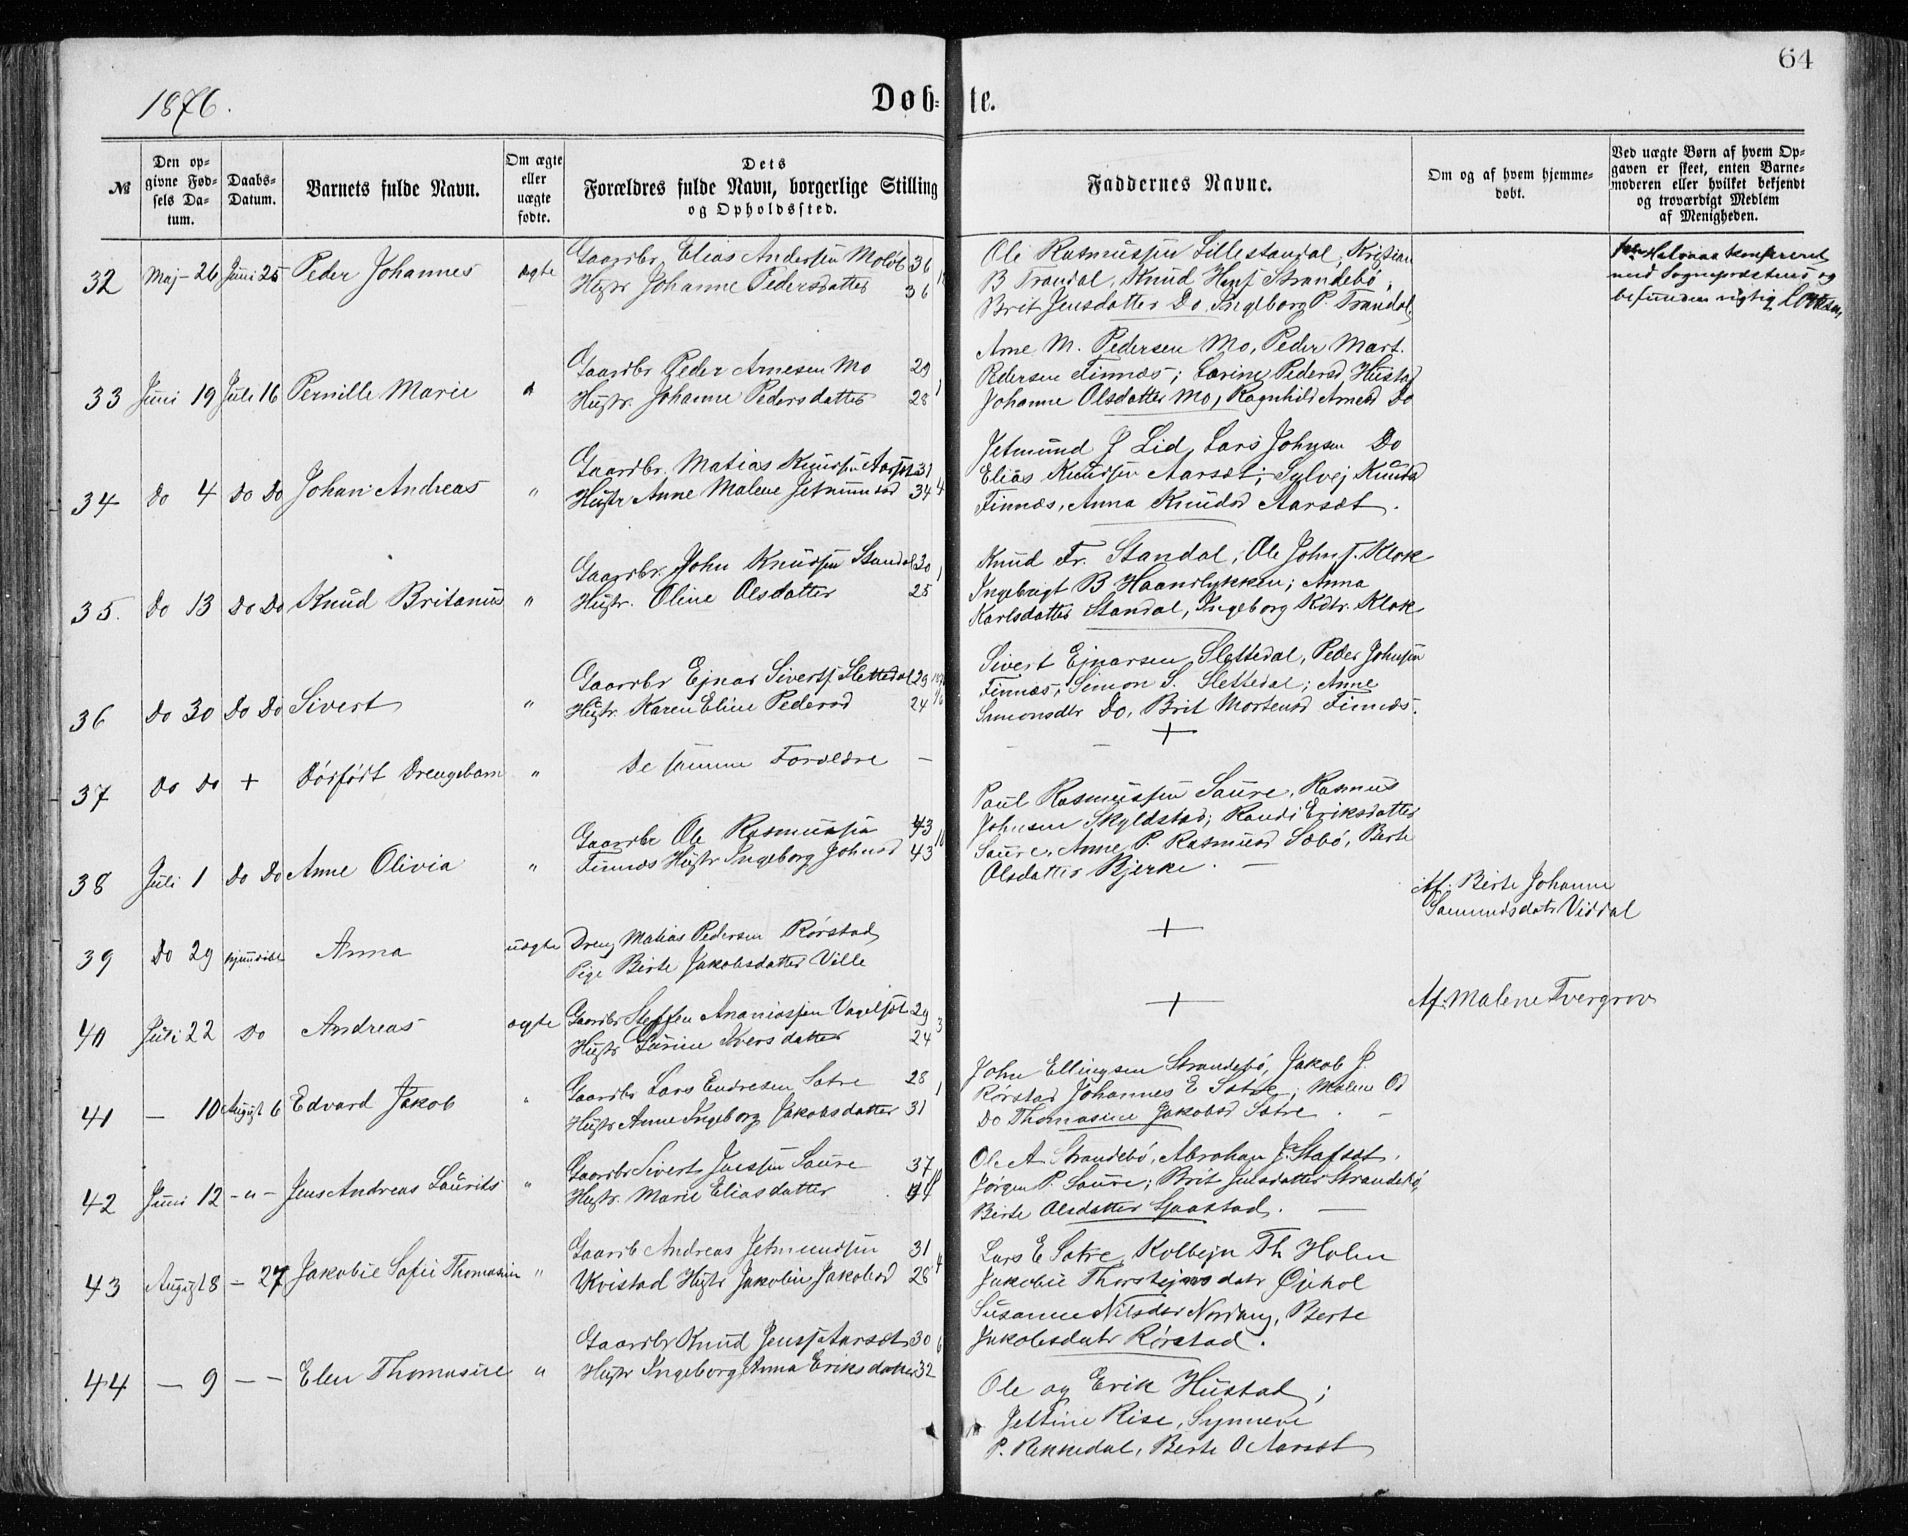 64
1876.
Døb= te.
№
Den op=
givne Fød=
sels Da=
tum.
Daabs=
Datum.
Barnets fulde Navn.
Om ægte
eller
uægte
fødte.
Dets
Forældres fulde Navn, borgerlige Stilling
og Opholdssted.
Faddernes Navne.
Om og af hvem hjemme=
døbt.
Ved uægte Børn af hvem Op=
gaven er skeet, enten Barne=
moderen eller hvilket bekjendt
og troværdigt Medlem
af Menigheden.
32 Maj 26 Juni 25 Peder Johannes ægte
Gaardbr. Elias Andersen 36
Hustr Johanne Pedersdatter 36
Ole Rasmussen Lillestandal, Kristian
B Trandal, Knud Strandebø,
Brit Jensdatter Do, Ingeborg P. Trandal
Halvaar konfereret
med Sogneprestens og
befunden rigtig
33 Juni 19 Juli 16 Pernille Marie
Gaardbr Peder Arnesen Mo 29
Hustr. Johanne Pedersdatter 28
Arne M. Pedersen Mo, Peder Mart.
Pedersen Finnæs; Larine Pedersd Hustad
Johanne Olsdatter Mo, Ragnhild Arnesd Do
34 Do 4 Do Do Johan Andreas "
Gaardbr. Matias Knudsen Aarset 31
Hustr Anne Malene Jetmundsd 34 4
Jetmund J Lid, Lars Johnsen Do
Elias Knudsen Aarsæt; Sylvej Knudsd
Finnæs, Anna Knudsd Aarsæt.
35. Do 13 Do Do Knud Britanus "
Gaardbr. John Knudsen Standal 30 1
Hustr. Oline Olsdatter 25
Knud Fr. Standal, Ole Johns. Klok
Ingebrigt B Haandlykken; Anna
Karlsdatter Standal, Ingeborg Kdtr. Klok
36 Do 30 Do Do Sivert "
Gaardbr Ejnar Siverts Slettedal 23
Hustr. Karen Eline Pedersd 24
Sivert Ejnarsen Slettedal, Peder Johnsen
Finnæs, Simon S. Slettedal; Anne
Simonsdtr Do, Brit Mortensd Finnæs.
37 Do Do + Dødfødt Drengebarn "
De samme Forældre —
+
38 Juli 1 Do Do Anne Olivia "
Gaardbr Ole Rasmussen 43
Finnæs Hustr Ingeborg Johnsd 43
Paul Rasmussen Saure, Rasmus
Johnsen Skyldstad; Randi Eriksdatter
Saure, Anne P. Rasmusd Sæbø, Berte
Olsdatter Bjerke.
39 Do 29 hjemdøbt Anna uægte
Dreng Matias Pedersen Rørstad
Pige Birte Jakobsdatter Ville
+
Af: Birte Johanne
Samundsdatr Viddal
40 Juli 22 Do Andreas ægte
Gaardbr Steffen Ananiassen 29 3
Hustr Larine Iversdatter 24
+
Af Malene Tvergrov
41 — 10 August 6 Edvard Jakob "
Gaardbr Lars Endresen Sætre 28 1
Hustr Anne Ingeborg Jakobsdatter 31
John Ellingsen Strandebø, Jakob J.
Rørstad Johannes E Sætre; Malene Od
Do Thomasine Jakobsd Sætre. —
42 Juni 12 -"- Jens Andreas Laurits "
Gaardbr Sivert Jenssen Saure 37
Hustr. Marie Eliasdatter
Ole A Strandebø, Abraham J. Stafset,
Jørgen P. Saure; Brit Jensdatter Strandebø,
Birte Olsdatter Gjaastad. —
43 August 8 — 27 Jakobie Sofie Thomasine "
Gaardb Andreas Jetmundsen 31 4
Kvistad Hustr Jakobine Jakobsd 28
Lars E Sætre, Kolbejn Th Holen
Jakobie Thorstejnsdatr Øjehol
Susanne Nilsdtr Nordang, Berte
Jakobsdatr Rørstad.
44 — 9 — — Elen Thomasine "
Gaardbr Knud Jensen Aarsæt 30 6
Hustr Ingeborg Anna Eriksdatter 32
Ole og Erik Hustad;
Jettine Rise, Synneve
P. Rennedal, Berte O Aarsæt